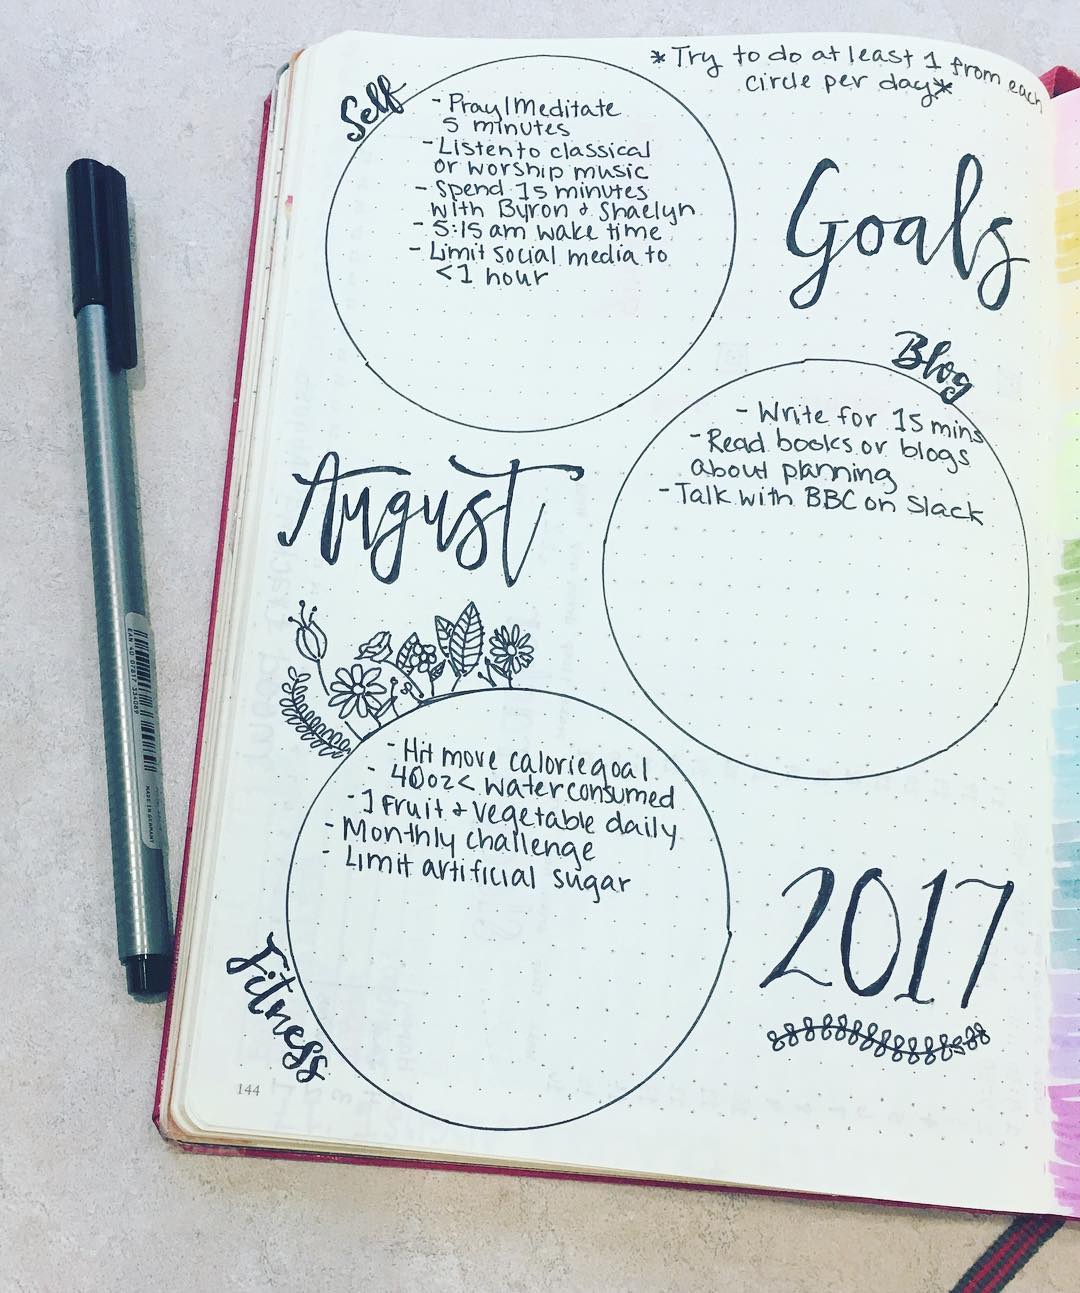 *Try to do at least 1 from each
circle per day*
Self
- Pray/Meditate
5 minutes
- Listen to classical
or worship music
- Spend 15 minutes
with Byron & Shaelyn
- 5:15 am wake time
- Limit social media to
<1 hour
Goals
Blog
- Write for 15 mins
- Read books or blogs
about planning
- Talk with BBC on Slack
August
- Hit move calorie goal
- 40oz< water consumed
- 1 Fruit & Vegetable daily
- Monthly challenge
- Limit artificial sugar
Fitness
2017
144
MADE IN GERMANY